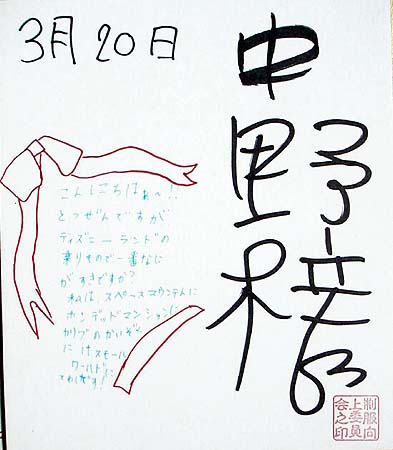 3月20日
中野
こんにちはぁ〜!!
とつぜんですが
ディズニーランドの
乗りもので一番なに
がすきですか?
私は、スペースマウンテンに
ホンデッドマンションに
カリブのかいぞく
に スモール
ワールドに
制服向
上委員
会之印